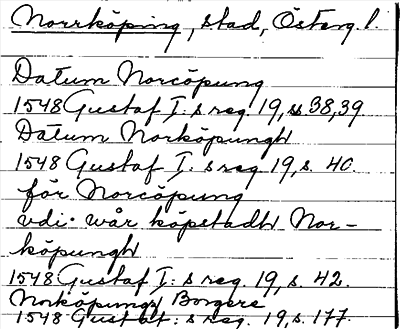 Norrköping, stad, Österg. l.
Datum Norcöpung
1548 Gustaf I: s reg. 19, ss 38, 39
Datum Norköpungh
1548 Gustaf I: s reg 19, s. 40.
för Norcöpung
vdi. wår köpstadh Nor-
köpungh
1548 Gustaf I: s reg. 19, s. 42.
Norköpungs Borgere
1548 Gustaf: s reg. 19, s. 177.